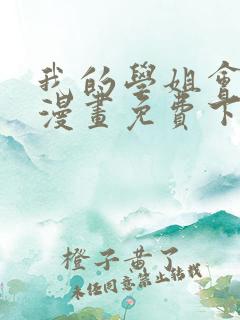 我的學姐會
漫畫免費下
橙子黃了
未经同意禁止转载